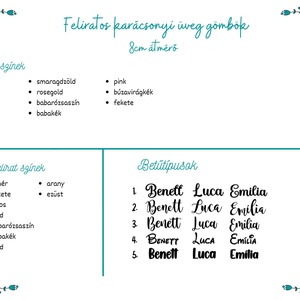 Feliratos karácsonyi üveg gömbök
8cm átmérő
színek
smaragdzöld
rosegold
babarózsaszín
babakék
pink
búzavirágkék
fekete
színek
arany
ezüst
Betűtípusok
1. Benett Luca Emilia
2. Benett Luca Emilia
3. Benett Luca Emilia
4. Benett Luca Emilia
5. Benett Luca Emilia